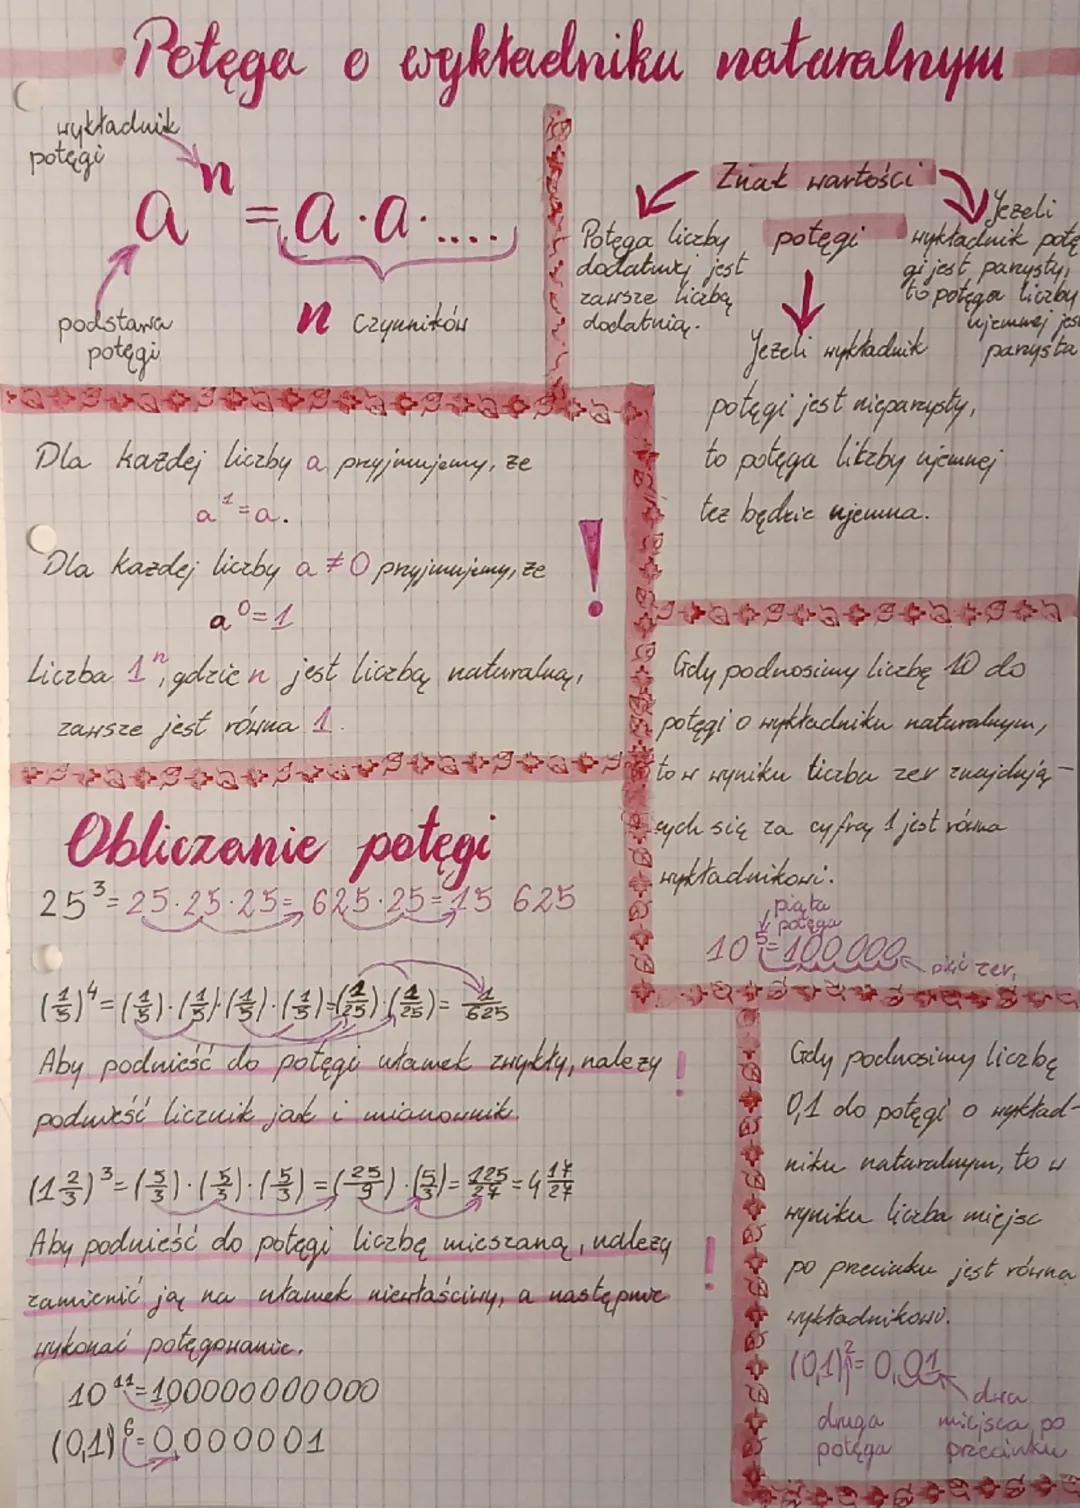 Potęga o wykładniku naturalnym
wykładnik
potęgi
aⁿ = a·a·....
n czynników
podstawa
potęgi
Znak wartości
potęgi
Potęga liczby
dodatniej jest
zawsze liczbą
dodatnią.
Jeżeli wykładnik
potęgi jest nieparzysty,
to potęga liczby ujemnej
też będzie ujemna.
Jeżeli
wykładnik potę
gi jest parzysty,
to potęga liczby
ujemnej jes
parzysta
Dla każdej liczby a przyjmujemy, że
a¹=a.
Dla każdej liczby a ≠ 0 przyjmujemy, że
a⁰=1
!
Liczba 1ⁿ, gdzie n jest liczbą naturalną,
zawsze jest równa 1.
Gdy podnosimy liczbę 10 do
potęgi o wykładniku naturalnym,
to w wyniku liczba zer znajdują-
cych się za cyfrą 1 jest równa
wykładnikowi.
piąta
potęga
10⁵=100 000
zer.
Obliczanie potęgi
25³=25·25·25=625·25=15 625
(1/5)⁴=(1/5)·(1/5)·(1/5)·(1/5)=(1/25)·(1/25)=1/625
Aby podnieść do potęgi ułamek zwykły, należy !
podnieść licznik jak i mianownik.
(1 2/3)³=(5/3)·(5/3)·(5/3)=(25/9)·(5/3)=125/27=4 17/27
Aby podnieść do potęgi liczbę mieszaną, należy !
zamienić ją na ułamek niewłaściwy, a następnie
wykonać potęgowanie.
10¹¹=100000000000
(0,1)⁶=0,000001
Gdy podnosimy liczbę
0,1 do potęgi o wykład-
niku naturalnym, to w
wyniku liczba miejsc
po przecinku jest równa
wykładnikowi.
(0,1)²=0,01
druga
potęga
dwa
miejsca po
przecinku